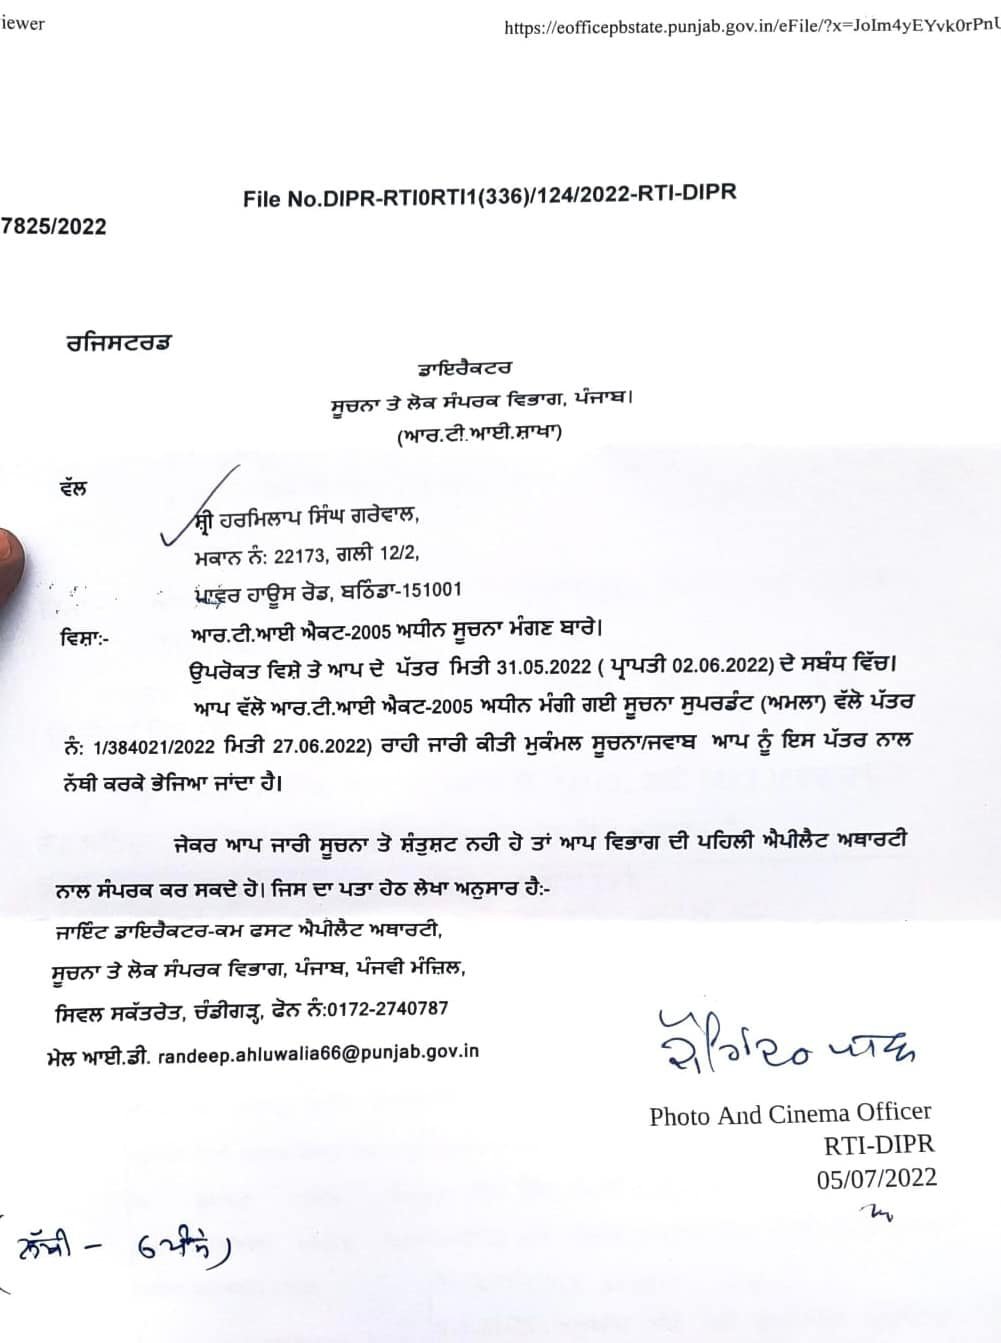 iewer
https://eofficepbstate.punjab.gov.in/eFile/?x=JoIm4yEYvk0rPnU
File No.DIPR-RTI0RTI1(336)/124/2022-RTI-DIPR
7825/2022
ਰਜਿਸਟਰਡ
ਡਾਇਰੈਕਟਰ
ਸੂਚਨਾ ਤੇ ਲੋਕ ਸੰਪਰਕ ਵਿਭਾਗ, ਪੰਜਾਬ।
(ਆਰ.ਟੀ.ਆਈ.ਸ਼ਾਖਾ)
ਵੱਲ
ਸ਼੍ਰੀ ਹਰਮਿਲਾਪ ਸਿੰਘ ਗਰੇਵਾਲ,
ਮਕਾਨ ਨੰ: 22173, ਗਲੀ 12/2,
ਪਾਵਰ ਹਾਊਸ ਰੋਡ, ਬਠਿੰਡਾ-151001
ਵਿਸ਼ਾ:- ਆਰ.ਟੀ.ਆਈ ਐਕਟ-2005 ਅਧੀਨ ਸੂਚਨਾ ਮੰਗਣ ਬਾਰੇ।
ਉਪਰੋਕਤ ਵਿਸ਼ੇ ਤੇ ਆਪ ਦੇ ਪੱਤਰ ਮਿਤੀ 31.05.2022 ( ਪ੍ਰਾਪਤੀ 02.06.2022) ਦੇ ਸਬੰਧ ਵਿੱਚ।
ਆਪ ਵੱਲੋ ਆਰ.ਟੀ.ਆਈ ਐਕਟ-2005 ਅਧੀਨ ਮੰਗੀ ਗਈ ਸੂਚਨਾ ਸੁਪਰਡੰਟ (ਅਮਲਾ) ਵੱਲੋ ਪੱਤਰ
ਨੰ: 1/384021/2022 ਮਿਤੀ 27.06.2022) ਰਾਹੀ ਜਾਰੀ ਕੀਤੀ ਮੁਕੰਮਲ ਸੂਚਨਾ/ਜਵਾਬ ਆਪ ਨੂੰ ਇਸ ਪੱਤਰ ਨਾਲ
ਨੱਥੀ ਕਰਕੇ ਭੇਜਿਆ ਜਾਂਦਾ ਹੈ।
ਜੇਕਰ ਆਪ ਜਾਰੀ ਸੂਚਨਾ ਤੋ ਸ਼ੰਤੁਸ਼ਟ ਨਹੀ ਹੋ ਤਾਂ ਆਪ ਵਿਭਾਗ ਦੀ ਪਹਿਲੀ ਐਪੀਲੈਟ ਅਥਾਰਟੀ
ਨਾਲ ਸੰਪਰਕ ਕਰ ਸਕਦੇ ਹੋ। ਜਿਸ ਦਾ ਪਤਾ ਹੇਠ ਲੇਖਾ ਅਨੁਸਾਰ ਹੈ:-
ਜਾਇੰਟ ਡਾਇਰੈਕਟਰ-ਕਮ ਫਸਟ ਐਪੀਲੈਟ ਅਥਾਰਟੀ,
ਸੂਚਨਾ ਤੇ ਲੋਕ ਸੰਪਰਕ ਵਿਭਾਗ, ਪੰਜਾਬ, ਪੰਜਵੀ ਮੰਜ਼ਿਲ,
ਸਿਵਲ ਸਕੱਤਰੇਤ, ਚੰਡੀਗੜ੍ਹ, ਫੋਨ ਨੰ:0172-2740787
ਮੇਲ ਆਈ.ਡੀ. randeep.ahluwalia66@punjab.gov.in
Photo And Cinema Officer
RTI-DIPR
05/07/2022
(ਨੱਥੀ - 6 ਪੰਨੇ)